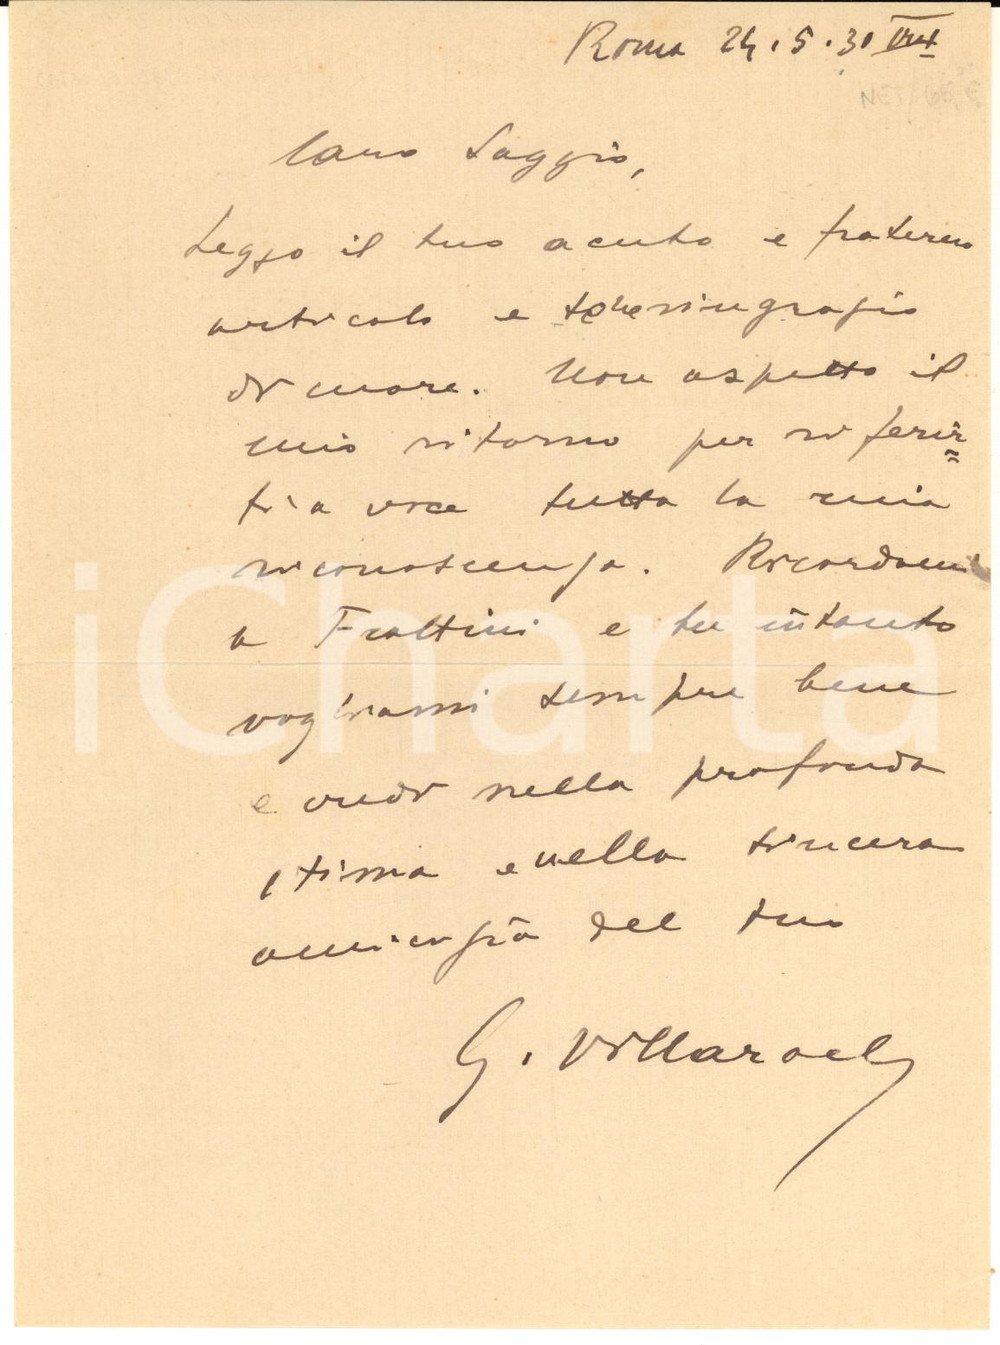 Roma 24.5.30 VIII
Caro Saggio,
Leggo il tuo acuto e fraterno
articolo e te ne ringrazio
di cuore. Non aspetto il
mio ritorno per riferir=
ti a voce tutta la mia
riconoscenza. Ricordami
a Frattini e tu intanto
vogliami sempre bene
e credi nella profonda
stima e nella sincera
amicizia del tuo
G. Villaroel
iCharta